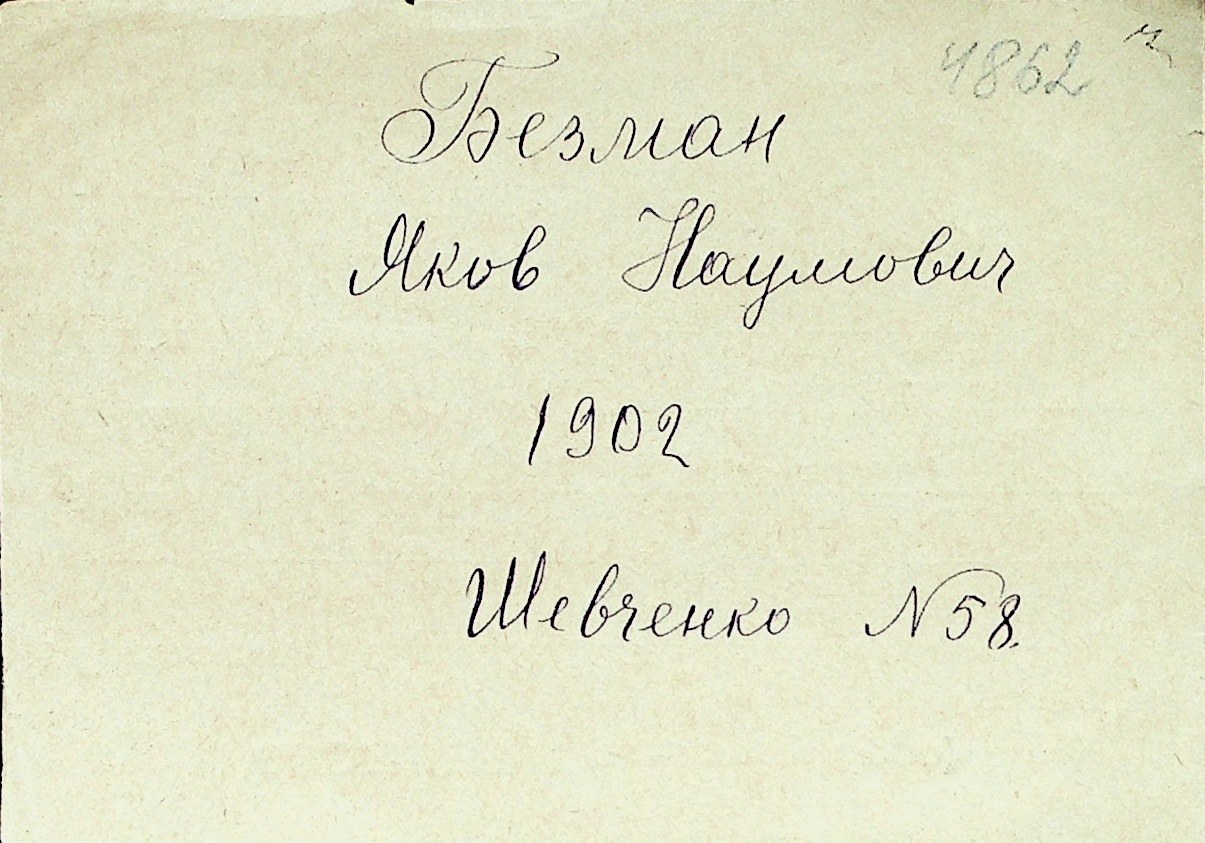 4862
Безман
Яков Наумович
1902
Шевченко N58.